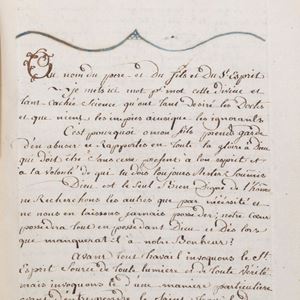 Au nom du pere et du fils et du St Esprit
Je mets ici mot pr mot cette divine et
tant cachée Science qu'ont tant desiré les Doctes
et que nient les impies aussi que les ignorants
C'est pourquoi o mon fils prends garde
d'en abuser et rapportes en toute la gloire à Dieu
qui doit etre sans cesse present à ton esprit et
à la volonté de qui tu dois toujours
Dieu est le Seul Bien Digne de l'homme
ne Recherchons les autres que par nécessité et
ne nous en laissons jamais posseder; notre Cœur
possedera tout en possedant Dieu et dès lors
que manquerat'il à notre Bonheur?
Avant tout travail invoquons le St
Esprit Source de toute lumiere et de toute Verité
mais invoquons le d'une maniere particuliere